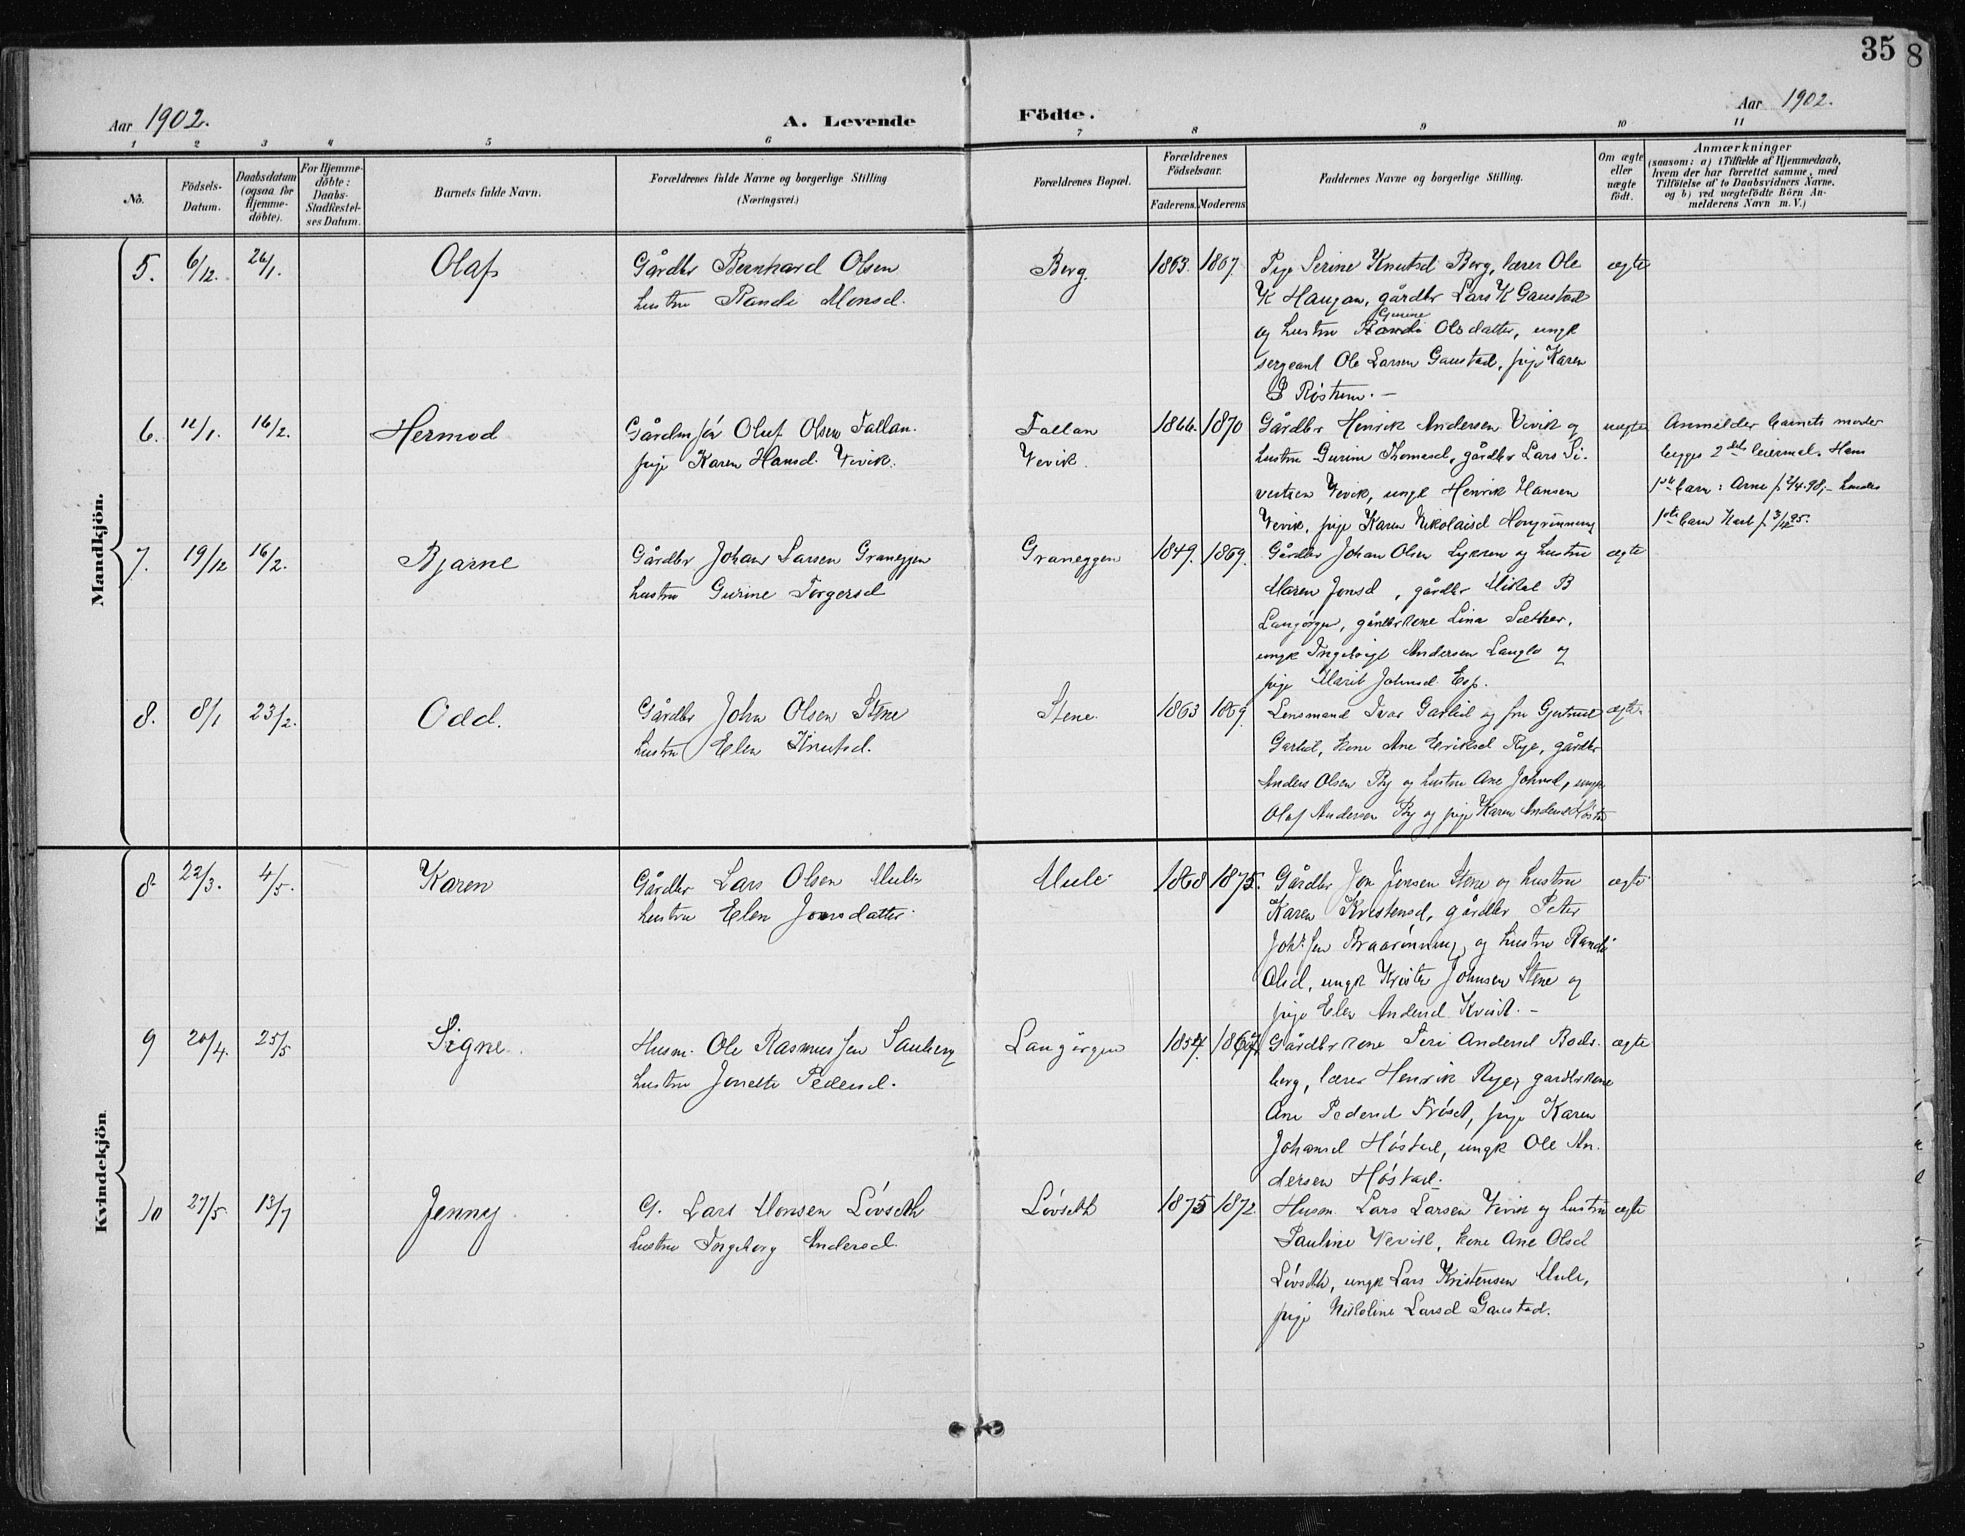 35
8
Aar 1902.
A. Levende
Födte.
Aar 1902.
1 2 3 4 5 6 7 8 9 10 11
No.
Födsels-
Datum.
Daabsdatum
(ogsaa for
Hjemme-
döbte).
For Hjemme-
döbte:
Daabs-
Stadfæstel-
ses Datum.
Barnets fulde Navn.
Forældrenes fulde Navne og borgerlige Stilling
(Næringsvei.)
Forældrenes Bopæl.
Forældrenes
Födselsaar.
Faderens. Moderens
Faddernes Navne og borgerlige Stilling.
Om ægte
eller
uægte
födt.
Anmærkninger
(saasom: a) i Tilfælde af Hjemmedaab,
hvem der har forrettet samme, med
Tilföielse af to Daabsvidners Navne,
og b) ved uægtefödte Börn An-
melderens Navn m. V.)
Mandkjön.
5. 6/12. 26/1. Olaf
Gårdbr Bernhard Olsen
hustru Randi Monsd.
Berg.
1863. 1867.
Pige Serine Knutsd Berg, lærer Ole
K Haugan, gårdbr Lars K Gaustad
og hustru Gurine Olsdatter, ungk
sergeant Ole Larsen Gaustad, pige Karen
Røstum. —
ægte
6. 12/1. 16/2. Hermod
Oluf Olsen Fallan.
pige Karen Hansd. Vevik.
Fallan
Vevik.
1866. 1870
Gårdbr Henrik Andersen Vevik og
hustru Gurine Thomasd, gårdbr Lars Si-
vertsen Vevik, ungk Henrik Hansen
Vevik, pige Karen Nikolaisd
uægte
Anmelder barnets moder
begges 2det leiermaal. Hans
1ste barn: Arne f 2/4 98, — hendes
1ste barn f 3/12 95.
7. 19/12 16/2. Bjarne
Gårdbr Johan Larsen Graneggen
hustru Gurine Torgersd
Graneggen
1849. 1869.
Gårdbr Johan Olsen og hustru
Maren Jonsd, gårdbr Mikal B
Langørgen, gårdbrkone Lina Sæther,
ungk Andersen Langlo og
pige Marit Johnsd. Esp.
ægte
8. 8/1 23/2. Odd.
Gårdbr John Olsen Stene
hustru Elen Knutsd.
Stene.
1863 1869.
Lensmand Ivar Garlid og fru Gjertrud
Garlid, kone Ane Eriksd Rye, gårdbr
Anders Olsen By og hustru Ane Johnsd, ungk
Olaf Andersen By og pige Karen Andersd
ægte
Kvindekjön
8. 22/3. 4/5. Karen
Gårdbr Lars Olsen Mule
hustru Elen Jonsdatter.
Mule
1868 1875.
Gårdbr Jon Jonsen Stene og hustru
Karen Kristensd, gårdbr Peter
Johs.sen Braarønning og hustru Randi
Olsd, ungk Krister Johnsen Stene og
pige Elen Andersd Kvist. —
ægte
9 20/4. 25/5 Signe.
Husm. Ole Rasmussen Sauberg
hustru Jonette Pedersd.
Langørgen
1854.
Gårdbrkone Seri Andersd Rods-
berg, lærer Henrik Rye, gardbrkone
Ane Pedersd Frøset, pige Karen
Johansd Høstad, ungk Ole An-
dersen Høstad.
ægte
10 27/5 13/7 Jenny
G. Lars Monsen Løvseth
hustru Ingeborg Andersd.
Løvseth
1875 1872.
Husm. Lars Larsen Vevik og hustru
Pauline Vevik, kone Ane Olsd
Løvseth, ungk Lars Kristensen Mule,
pige Nikoline Larsd Gaustad.
ægte